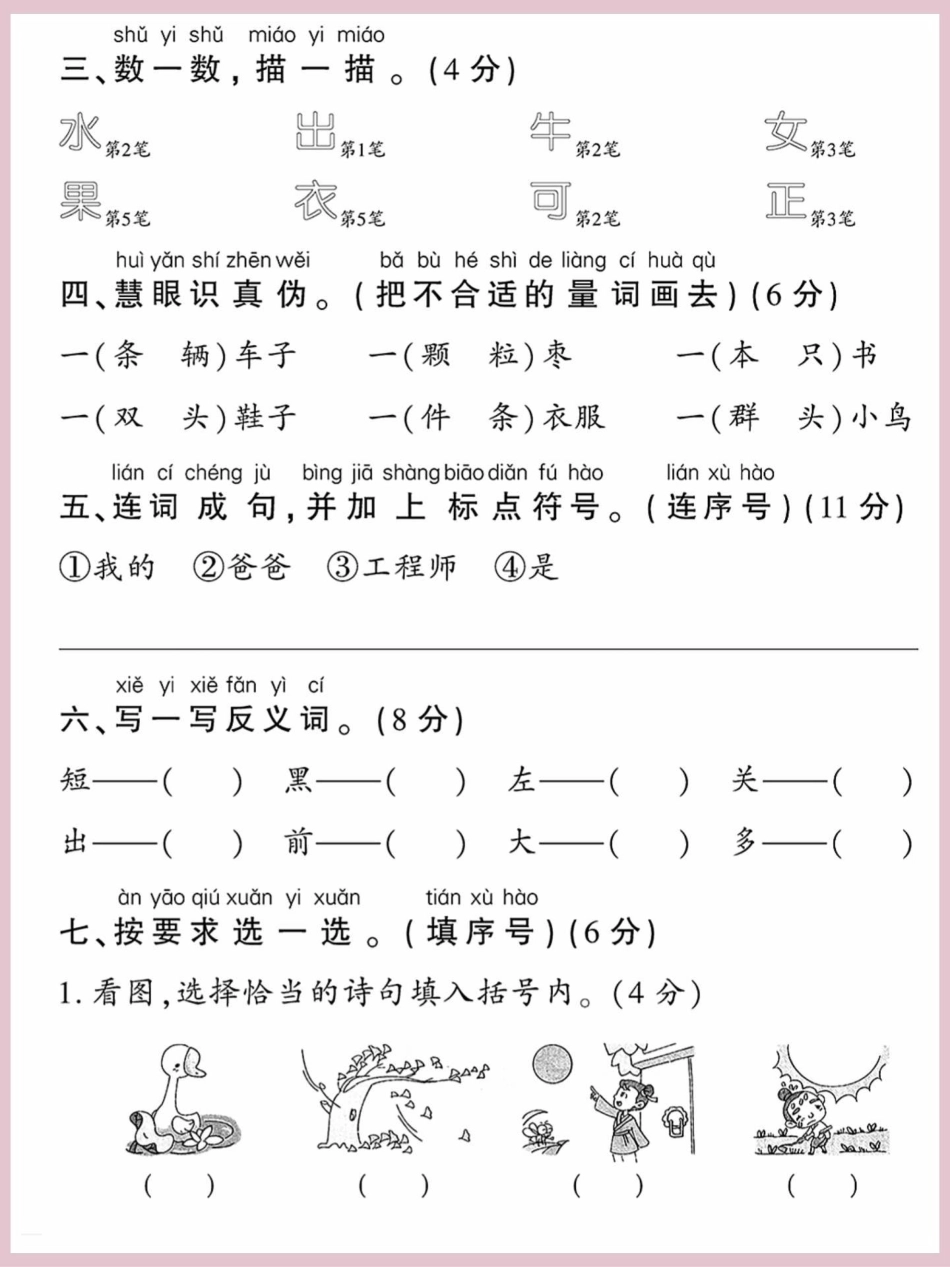 shǔ yi shǔ miáo yi miáo
三、数一数,描一描。(4分)
水第2笔 出第1笔 牛第2笔 女第3笔
果第5笔 衣第5笔 可第2笔 正第3笔
huì yǎn shí zhēn wěi bǎ bù hé shì de liàng cí huà qù
四、慧眼识真伪。(把不合适的量词画去)(6分)
一(条 辆)车子 一(颗 粒)枣 一(本 只)书
一(双 头)鞋子 一(件 条)衣服 一(群 头)小鸟
lián cí chéng jù bìng jiā shàng biāo diǎn fú hào lián xù hào
五、连词成句,并加上标点符号。(连序号)(11分)
①我的 ②爸爸 ③工程师 ④是
xiě yi xiě fǎn yì cí
六、写一写反义词。(8分)
短——( ) 黑——( ) 左——( ) 关——( )
出——( ) 前——( ) 大——( ) 多——( )
àn yāo qiú xuǎn yi xuǎn tián xù hào
七、按要求选一选。(填序号)(6分)
1.看图,选择恰当的诗句填入括号内。(4分)
( ) ( ) ( ) ( )